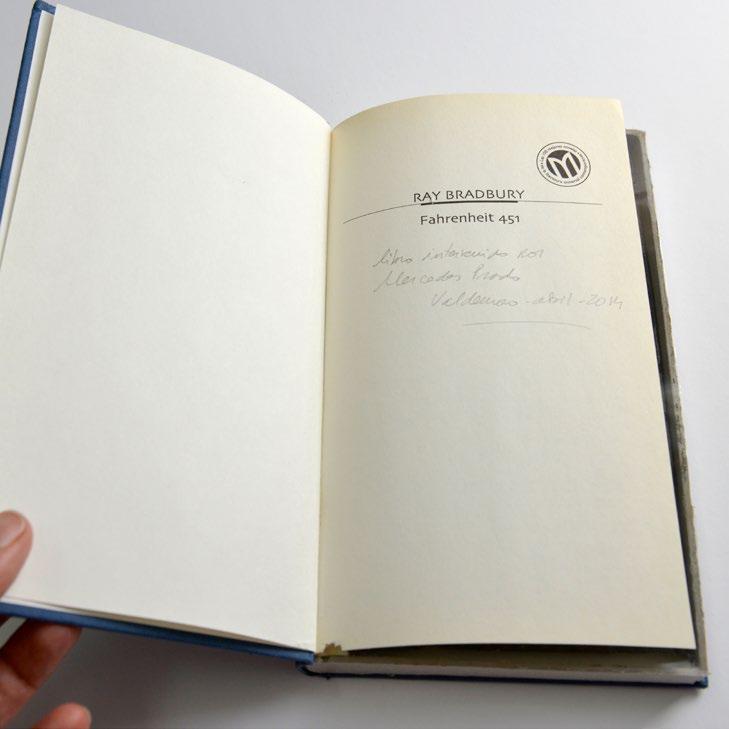 RAY BRADBURY
Fahrenheit 451
libro intervenido por
Mercedes Prado
Valdemoro - abril - 2014